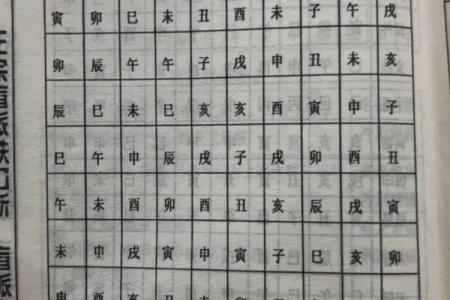 寅 卯 巳 未 丑 酉 未 子 午 戌
卯 辰 午 午 子 戌 申 丑 未 亥
辰 巳 未 巳 亥 亥 酉 寅 申 子
巳 午 申 辰 戌 子 戌 卯 酉 丑
午 未 酉 卯 酉 丑 亥 辰 戌 寅
未 申 戌 寅 申 寅 子 巳 亥 卯
宗盲派铁口断 盲派